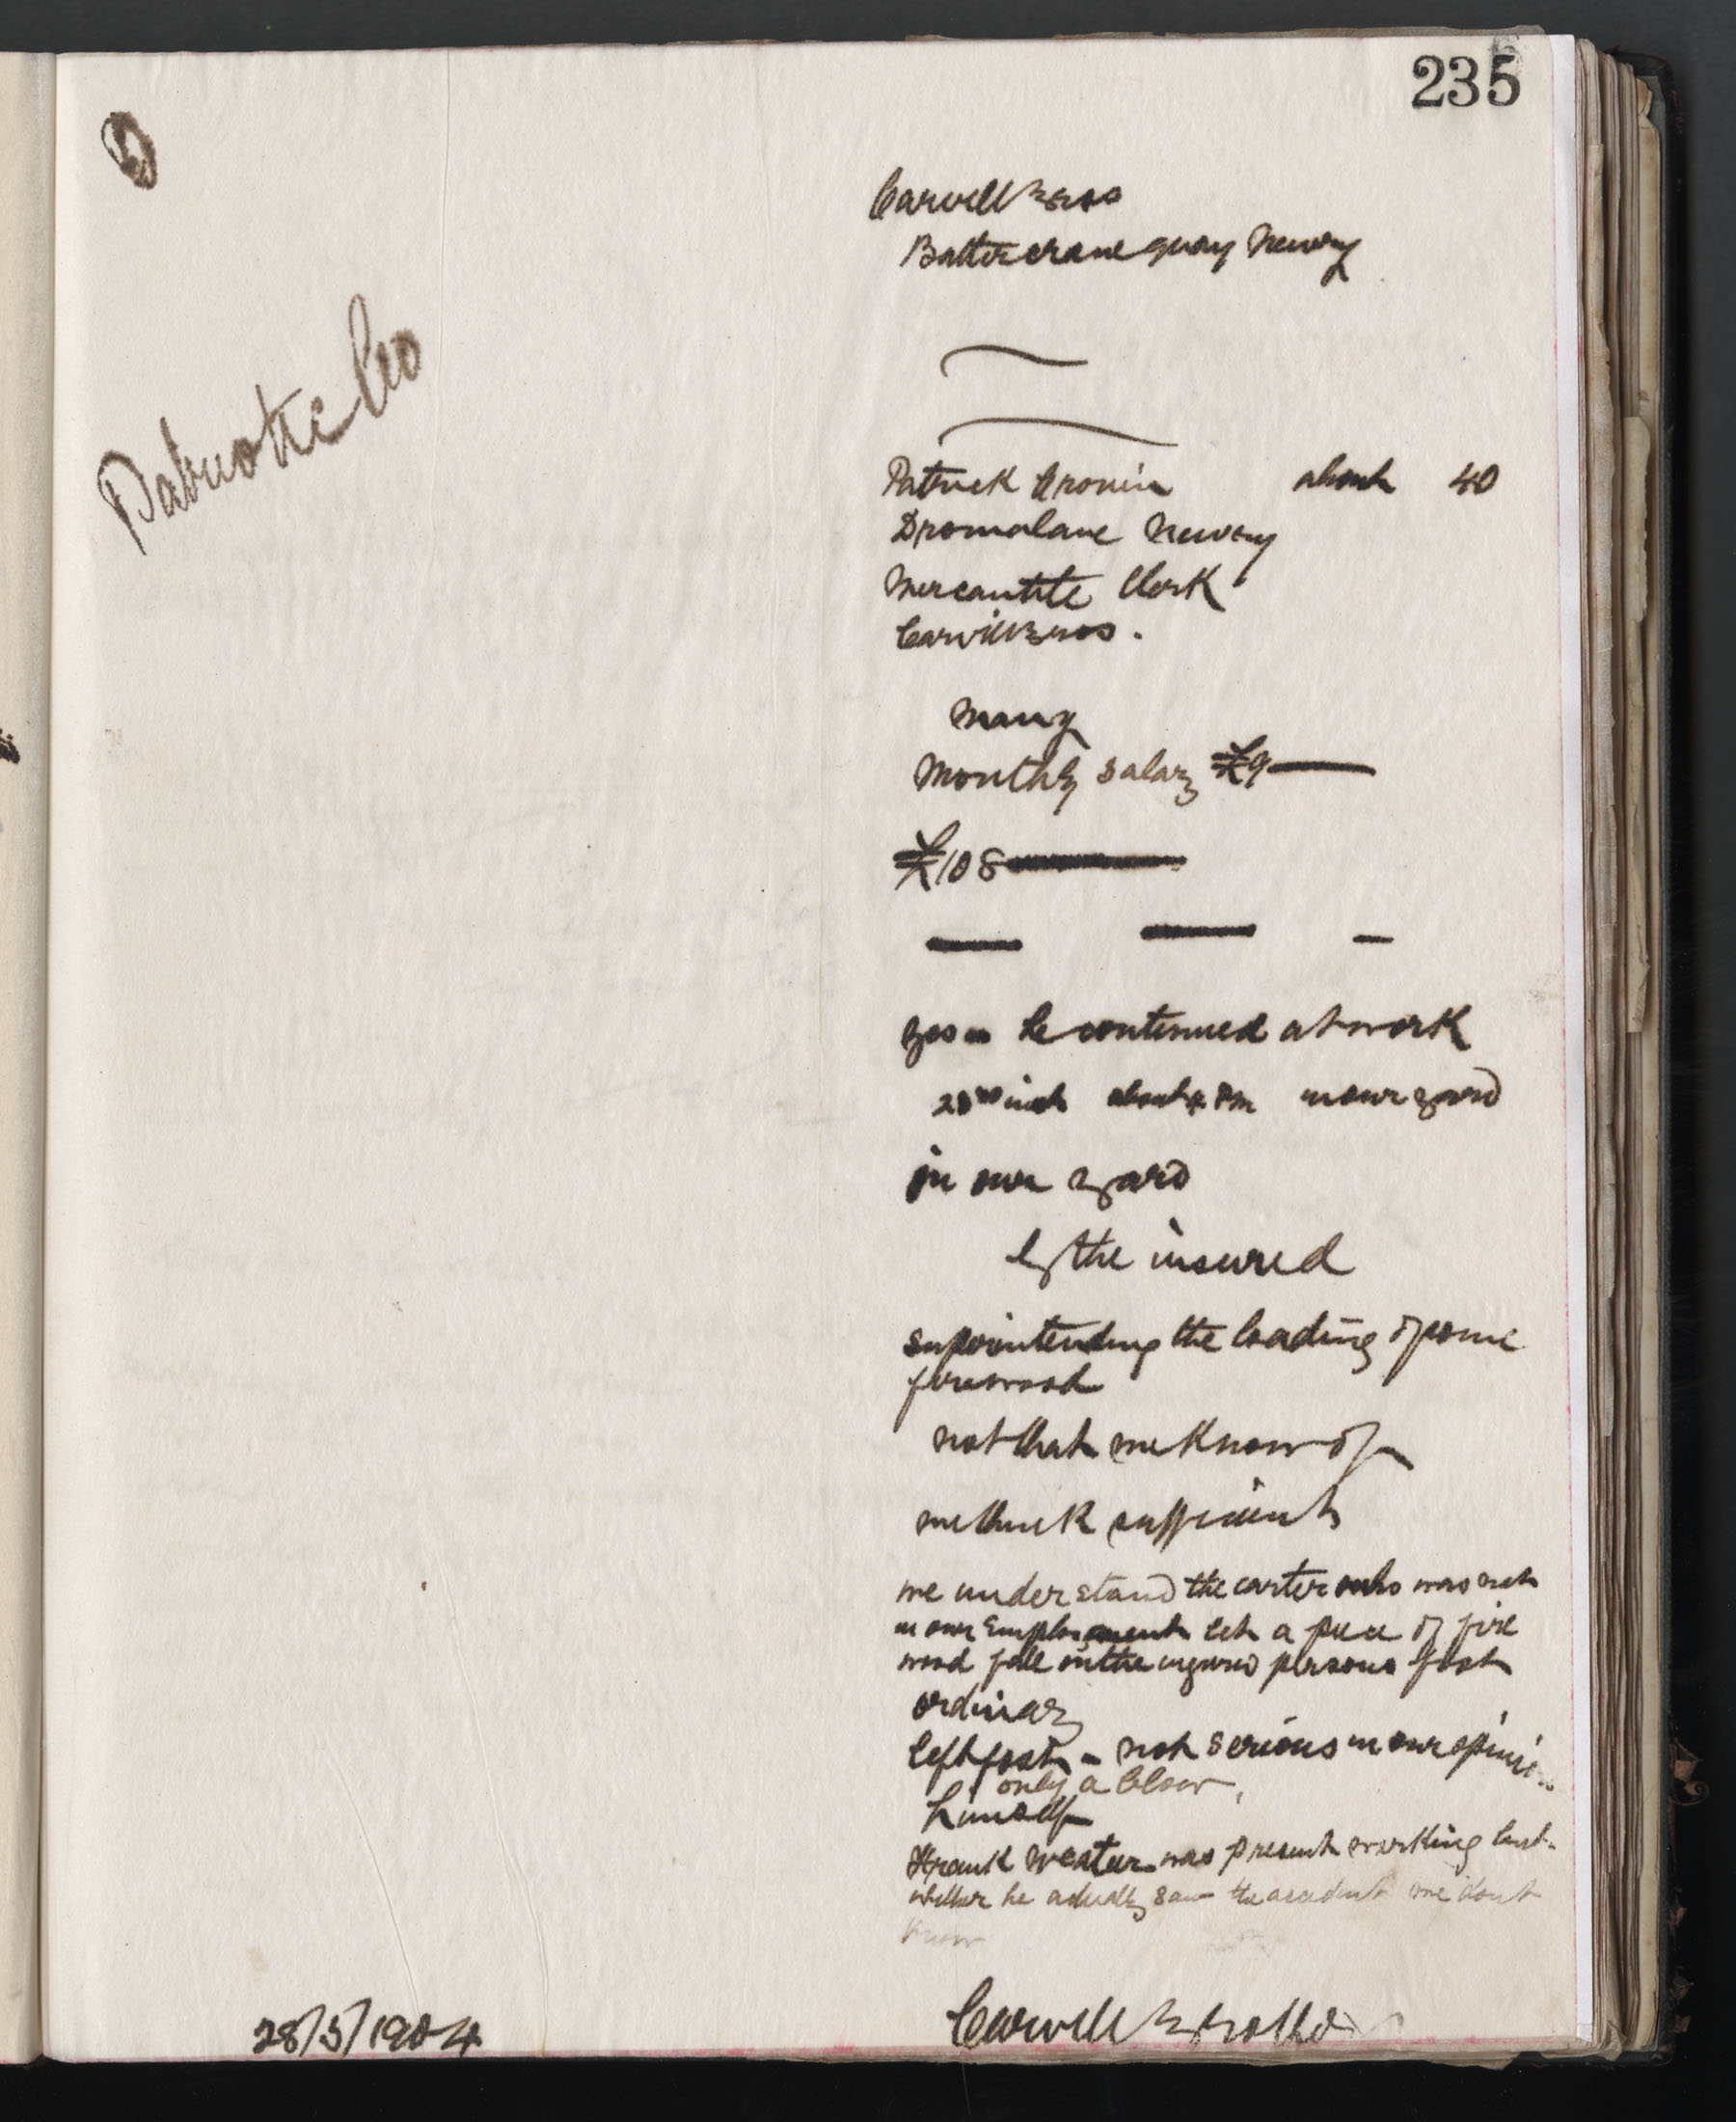 235
Carvill Bros
Buttercrane Quay Newry
Patriotic Co
Patrick Cronin about 40
Dromalane Newry
Mercantile Clerk
Carvill Bros.
many
Monthly salary £9
£108
yes - he continued at work
23rd inst about 4 Pm in our yard
in our yard
by the insured
superintending the loading of some
firewood
not that we know of
we think sufficient
we understand the carter who was not
in our Employment let a piece of fire
wood fall on the injured persons foot
ordinary
left foot - not serious in our opinion
only a blow,
himself
Frank was present working but
whether he actually saw the accident we dont
know
28/3/1904
Carvill Brothers